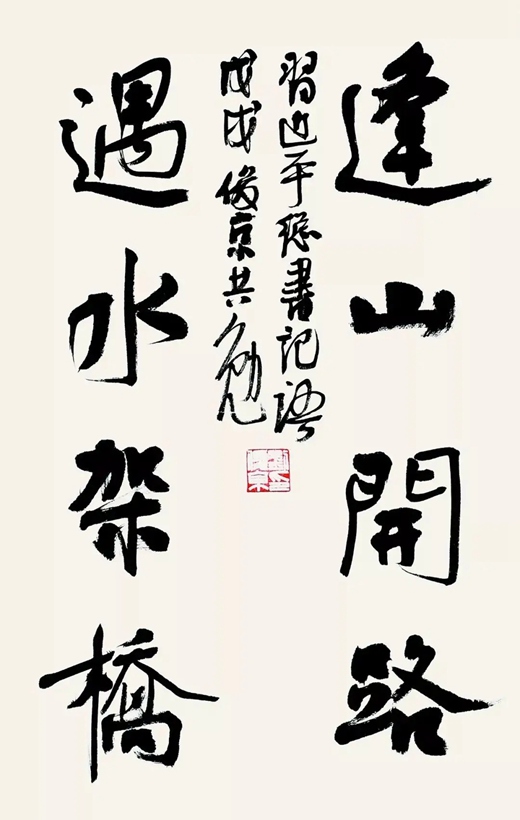 逢山開路
遇水架橋
習近平總書記語
戊戌俊京共勉